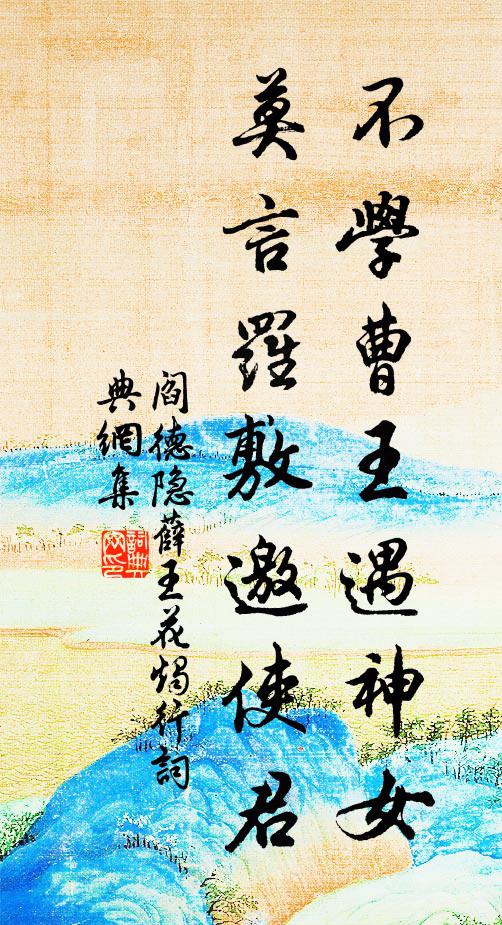 不學曹王遇神女
莫言羅敷邀使君
閻德隐薛王花燭行詞
典網集
詞典